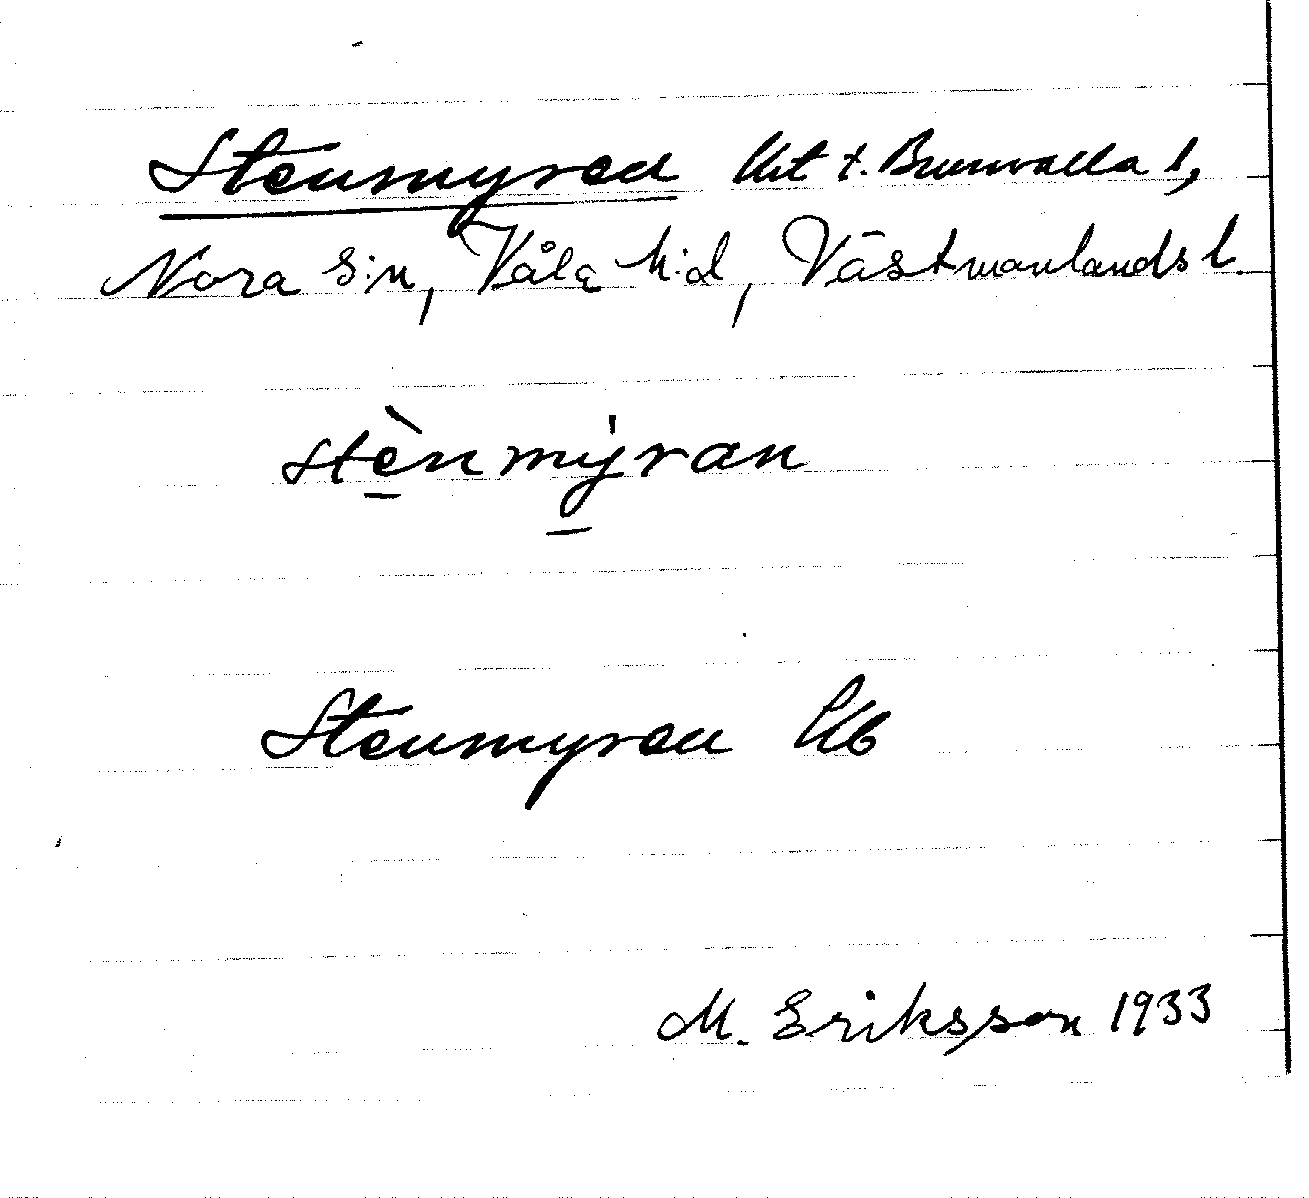 Stenmyren lht t. Brunvalla 1,
Nora s:n, Våla h:d, Västmanlands l.
stènmýran
Stenmyren Ek
M. Eriksson 1933